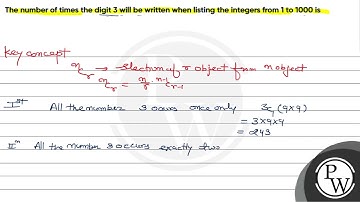 The number of times the digit 3 will be written when listing the integers from 1 to 1000 is
Key concept
ⁿCᵣ → selection of r object from n object
ⁿCᵣ = n/r ⁿ⁻¹Cᵣ₋₁
Iˢᵗ All the number 3 occurs once only ³C₁ (9×9)
= 3×9×9
= 243
IIⁿ All the number 3 occurs exactly two
PW